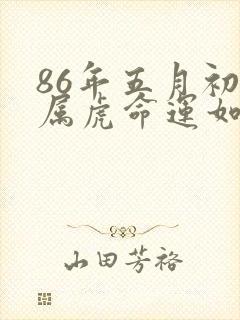 86年五月初
属虎命运如
山田芳裕